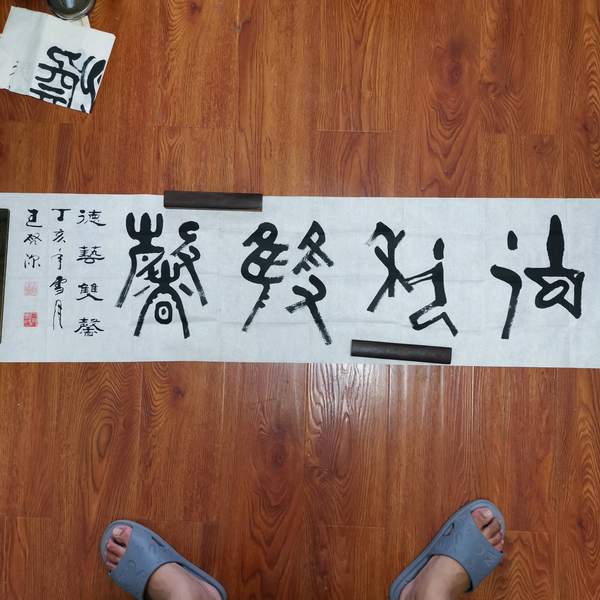 德藝雙馨
德藝雙馨
丁亥年雪月